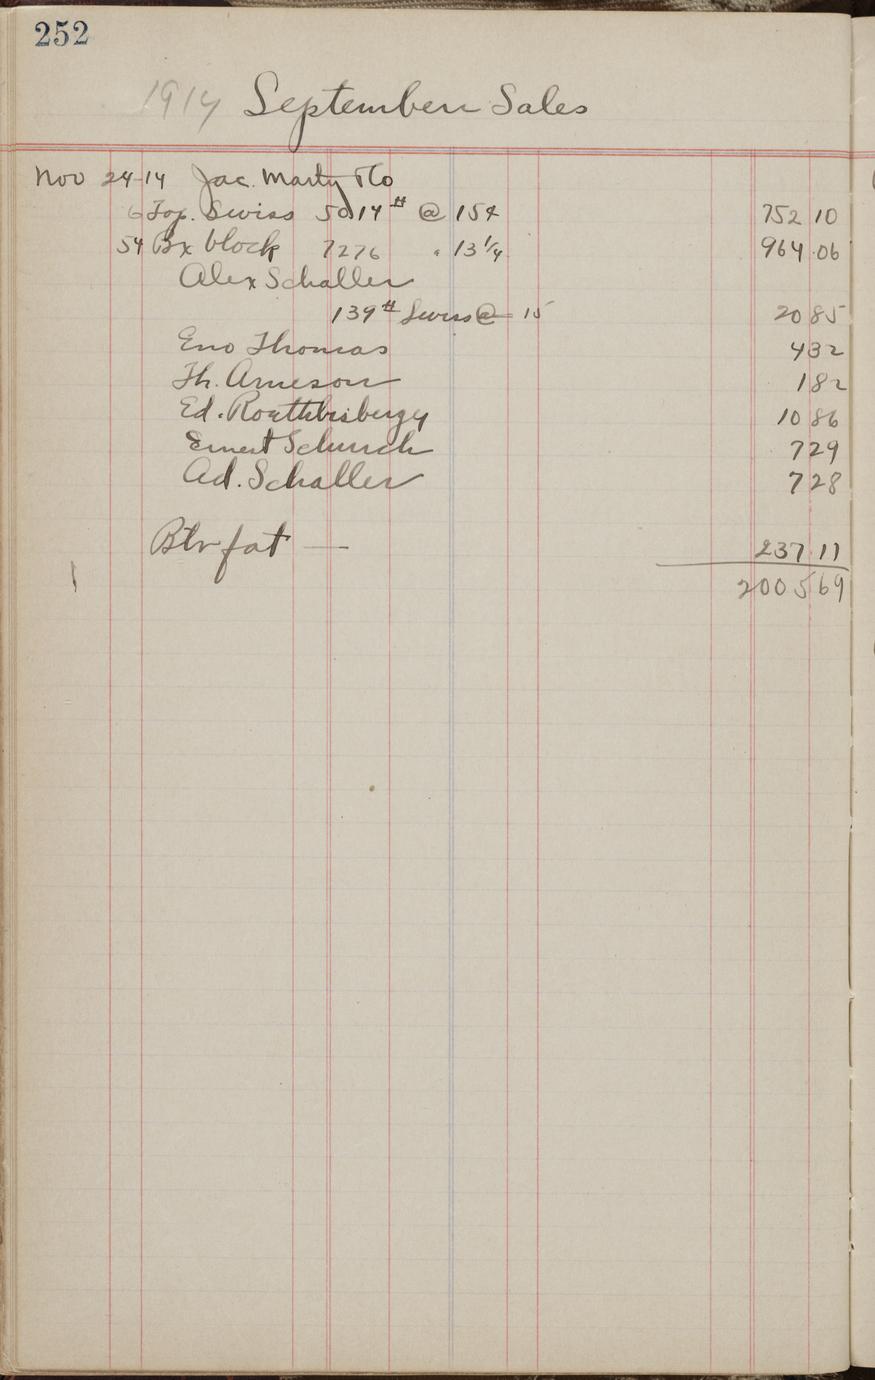 252
1914 September Sales
Nov 24-14 Jac. Marty & Co
6 Top. Swiss 5014 # @ 15¢ 752 10
54 Bx block 7276 " 13 1/4 964.06
Alex Schaller
139 # Swiss @ 15 20 85
Eno Thomas 4 32
Th. Arneson 1 82
Ed. 10 86
Ernest Schurch 7 29
Ad. Schaller 7 28
Btr fat — 237 11
2005 69